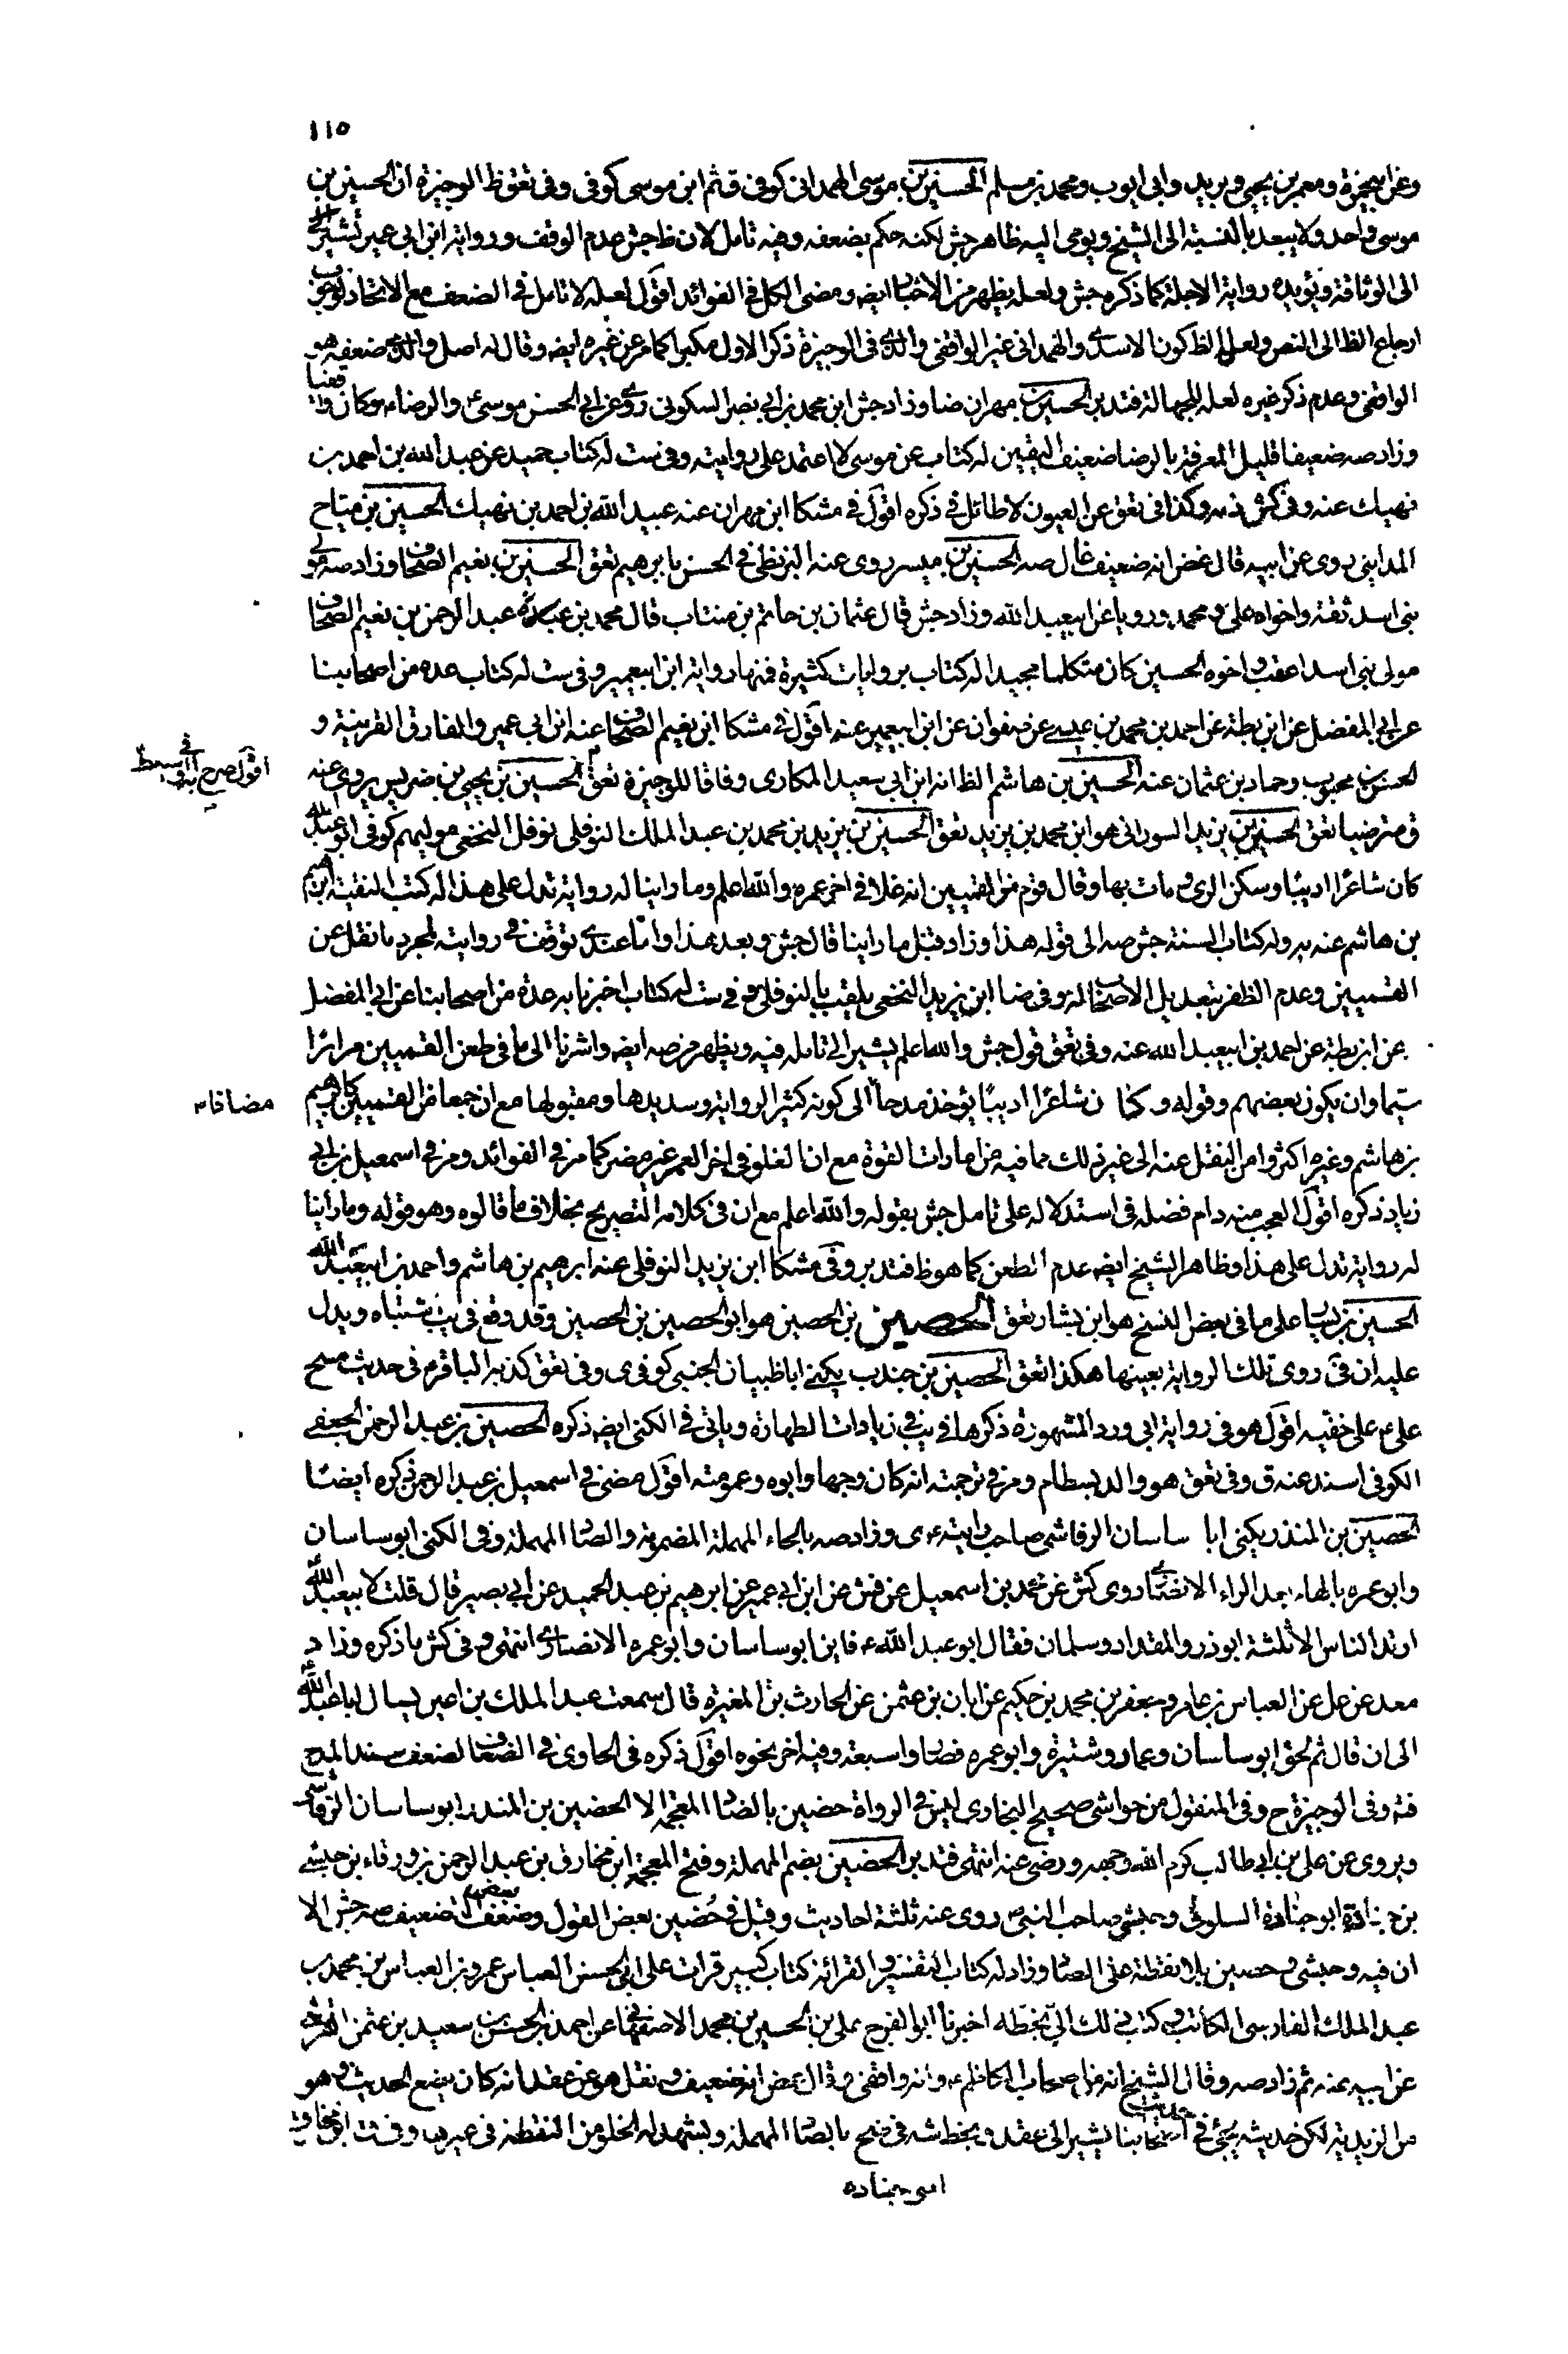 ١١٥
وعن ابی حمزة ومعمر بن یحیی وبرید وابی ایوب ومحمد بن مسلم الحسین بن موسی الهمدانی کوفی ق ثم ابن موسی کوفی وفی تعق ظ الوجیزة ان الحسین بن
موسی واحد ولا یبعد بالنسبة الی الشیخ ویومی الیه ظاهر جش لکنه حکم بضعفه وفیه تامل لان ظ جش عدم الوقف وروایة ابن ابی عمیر تشیر
الی الوثاقة ویؤیده روایة الاجلة کما ذکره جش ولعله یظهر من الاخبار ایضه ومضی الکل فی الفوائد اقول لعله لا تامل فی الضعف مع الاتحاد لوجوب
ارجاع الظ الی النص ولعل الظ کون الاسدی والهمدانی غیر الواقفی والذی فی الوجیزة ذکر الاول مکبرا کما مر عن غیره ایضه وقال له اصل والذی ضعفه هو
الواقفی وعدم ذکر غیره لعله للجهالة فتدبر الحسین بن مهران ضا وزاد جش ابن محمد بن ابی نصر السکونی روی عن ابی الحسن موسی ع والرضا ع وکان واقفیا
وزاد صه ضعیفا قلیل المعرفة بالرضا ضعیف الیقین له کتاب عن موسی لا اعتمد علی روایته وفی ست له کتاب حمید عن عبد الله بن احمد بن
نهیك عنه وفی کش ذمه وکذا فی تعق عن العیون لا طائل فی ذکره اقول فی مشکا ابن مهران عنه عبید الله بن احمد بن نهیك الحسین بن میاح
المداینی روی عن ابیه قال غض انه ضعیف غال صه الحسین بن میسر روی عنه البزنطی فی الحسن بابرهیم تعق الحسین بن نعیم الصحاف وزاد صه مولی
بنی اسد ثقة واخواه علی ومحمد ورویا عن ابیعبد الله وزاد جش قال عثمان بن حاتم بن منتاب قال محمد بن عبده عبد الرحمن بن نعیم الصحاف
مولی بنی اسد اعقب واخوه الحسین کان متکلما مجیدا له کتاب بروایات کثیرة فمنها روایة ابن ابیعمیر وفی ست له کتاب عده من اصحابنا
عن ابی المفضل عن ابن بطة عن احمد بن محمد بن عیسی عن صفوان عن ابن ابیعمیر عنه اقول فی مشکا ابن نعیم الصحاف عنه ابن ابی عمیر والفارق القرینة و
اقول صرح به فی الوسیط
الحسن بن محبوب وحماد بن عثمان عنه الحسین بن هاشم الظ انه ابن ابی سعید المکاری وفاقا للوجیزة تعق الحسین بن یحیی بن ضریس یروی عنه
ق مترضیا تعق الحسین بن یزید السورانی هو ابن محمد بن یزید تعق الحسین بن یزید بن محمد بن عبد الملك النوفلی نوفل النخعی مولیهم کوفی ابو عبد الله
کان شاعرا ادیبا وسکن الری ومات بها وقال قوم من القمیین انه غلا فی اخر عمره والله اعلم وما راینا له روایة تدل علی هذا له کتب التقیة ابرهیم
بن هاشم عنه به وله کتاب السنة جش صه الی قوله هذا وزاد وقیل ما راینا قال جش وبعد هذا واما عندی توقف فی روایته لمجرد ما نقل عن
القمیین وعدم الظفر بتعدیل الاصحاب له وفی ضا ابن یزید النخعی یلقب بالنوفلی وفی ست له کتاب اخبرنا به عدة من اصحابنا عن ابی المفضل
عن ابن بطة عن احمد بن ابیعبد الله عنه وفی تعق قول جش والله اعلم یشیر الی تامله فیه ویظهر من صه ایضه واشرنا الی ما فی طعن القمیین مرارا
سیما وان یکون بعضهم وقوله وکان شاعرا ادیبا یؤخذ مدحا الی کونه کثیر الروایة وسدیدها ومقبولها مع ان جمعا من القمیین کابرهیم
مضافا
بن هاشم وغیره اکثروا من النقل عنه الی غیر ذلك مما فیه من امارات القوة مع ان الغلو فی اخر العمر غیر مضر کما مر فی الفوائد ومر فی اسمعیل بن ابی
زیاد ذکره اقول العجب منه دام فضله فی استدلاله علی تامل جش بقوله والله اعلم مع ان فی کلامه التصریح بخلاف ما قالوه وهو قوله وما راینا
له روایة تدل علی هذا وظاهر الشیخ ایضه عدم الطعن کما هو ظ فتدبر وفی مشکا ابن یزید النوفلی عنه ابرهیم بن هاشم واحمد بن ابیعبد الله
الحسین بن یسار علی ما فی بعض النسخ هو ابن بشار تعق الحصین بن الحصین هو ابو الحصین بن الحصین وقد وقع فی یب اشتباه ویدل
علیه ان فی روی تلك الروایة بعینها هکذا تعق الحصین بن جندب یکنی ابا ظبیان الجنبی کوفی ی وفی تعق کذبه الباقر ع فی حدیث مسح
علی ع علی خفیه اقول هو فی روایة ابی ورد المشهورة ذکرها فی یب فی زیادات الطهارة ویاتی فی الکنی ایضه ذکره الحصین بن عبد الرحمن الجعفی
الکوفی اسند عنه ق وفی تعق هو والد بسطام ومر فی ترجمته انه کان وجها وابوه وعمومته اقول مضی فی اسمعیل بن عبد الرحمن ذکره ایضا
الحصین بن المنذر یکنی ابا ساسان الرقاشی صاحب رایته ع ی وزاد صه بالحاء المهملة المضمومة والصاد المهملة وفی الکنی ابو ساسان
وابو عمره بالهاء بعد الراء الانصاری روی کش عن محمد بن اسمعیل عن فش عن ابن ابی عمیر عن ابرهیم بن عبد الحمید عن ابی بصیر قال قلت لابیعبد الله
ارتد الناس الا ثلثة ابو ذر والمقداد وسلمان فقال ابو عبد الله ع فاین ابو ساسان وابو عمره الانصاری انتهی وفی کش ما ذکره وزاد
محمد عن عل عن العباس بن عامر وجعفر بن محمد بن حکیم عن ابان بن عثمن عن الحارث بن المغیرة قال سمعت عبد الملك بن اعین یسال ابا عبد الله
الی ان قال ثم لحق ابو ساسان وعمار وشتیرة وابو عمره فصاروا سبعة وفیه اخر نحوه اقول ذکره فی الحاوی فی الضعاف لضعف سند المدح
فته وفی الوجیزة ح وفی المنقول من حواشی صحیح البخاری لیس فی الرواة حضین بالضاد المعجمة الا الحضین بن المنذر ابو ساسان الرقاشی
ویروی عن علی بن ابی طالب کرم الله وجهه ورضی عنه انتهی فتدبر الحضین بضم المهملة وفتح المعجمة ابن مخارق بن عبد الرحمن بن ورقاء بن حبشی
بن جنادة ابو جنادة السلولی وحبشی صاحب النبی ص روی عنه ثلثة احادیث وقیل فی حضین بعض القول وضعف بعض الضعیف صه جش الا
ان فیه وحبشی وحصین بلا نقطة علی الصاد وزاد له کتاب التفسیر والقراءات کتاب کبیر قرات علی ابی الحسن العباس عمرو بن العباس بن محمد بن
عبد الملك الفارسی الکاتب وکتب فی ذلك الی بخطه اخبرنا ابو الفرج علی بن الحسین بن محمد الاصفهانی عن احمد بن الحسن بن سعید بن عثمن القرشی
عن ابیه عنه ثم زاد صه وقال الشیخ انه من اصحاب الکاظم ع وانه واقفی وقال غض انه ضعیف ونقل هو عن عقد انه کان یضع الحدیث وهو
من الزیدیة لکن حدیثه یجئ فی حدیث اصحابنا یشیر الی عقد وبخط شه فی ضح بالصاد المهملة ویشهد له الخلو من النقطة فی وفی ست ابن مخارق
ابو جناده